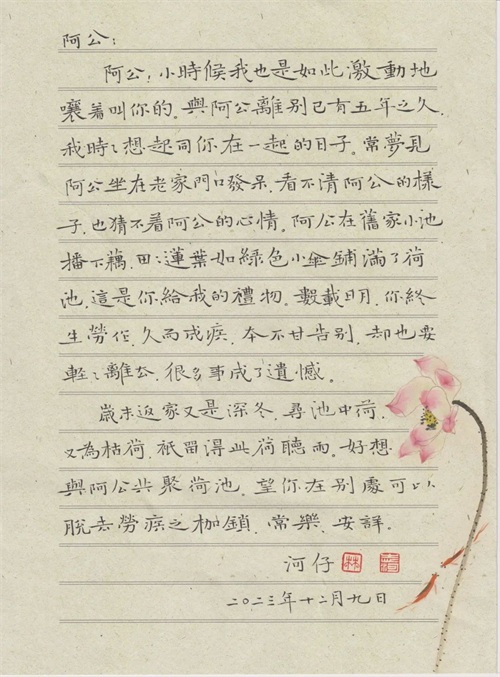 阿公：
阿公！小時候我也是如此激動地
嚷着叫你的。與阿公離别已有五年之久.
我時〻想起同你在一起的日子。常夢見
阿公坐在老家門口發呆.看不清阿公的樣
子.也猜不着阿公的心情。阿公在舊家小池
播下藕.田〻蓮葉如綠色小傘鋪滿了荷
池.這是你給我的禮物。數載日月.你終
生勞作.久而成疾.本不甘告别.却也要
輕〻離公.很多事成了遺憾。
歲末返家又是深冬.尋池中荷.
又為枯荷.衹留得此荷聽雨。好想
與阿公共聚荷池。望你在别處可以
脱去勞疾之枷鎖.常樂.安詳。
河仔
二〇二三年十二月九日